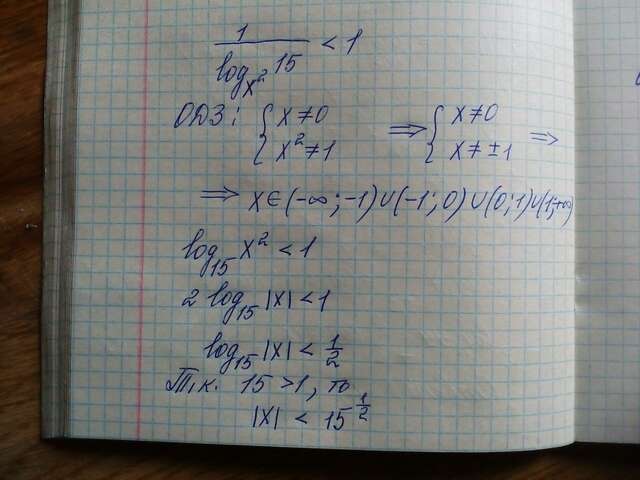 1/log_{x²} 15 < 1
ОДЗ: { x ≠ 0 x² ≠ 1 ⇒ { x ≠ 0 x ≠ ±1 ⇒
⇒ x ∈ (-∞; -1) ∪ (-1; 0) ∪ (0; 1) ∪ (1; +∞)
log₁₅ x² < 1
2 log₁₅ |x| < 1
log₁₅ |x| < 1/2
Т.к. 15 > 1, то
|x| < 15^{1/2}